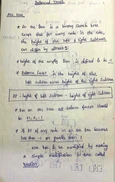 Balanced Trees
AVL Tree
An AVL tree is a binary search tree
except that for every node in the tree,
the height of the left & right subtrees
can differ by atmost 1.
height of the empty tree is defined to be -1.
Balance Factor is the height of the
left subtree minus height of the right subtree
BF = height of left subtree - height of right subtree
For an AVL tree all balance factor should
be +1, 0, -1
If BF of any node in an AVL tree becomes
less than -1 or greater than 1
tree has to be modified by making
a simple modification to tree called
rotation